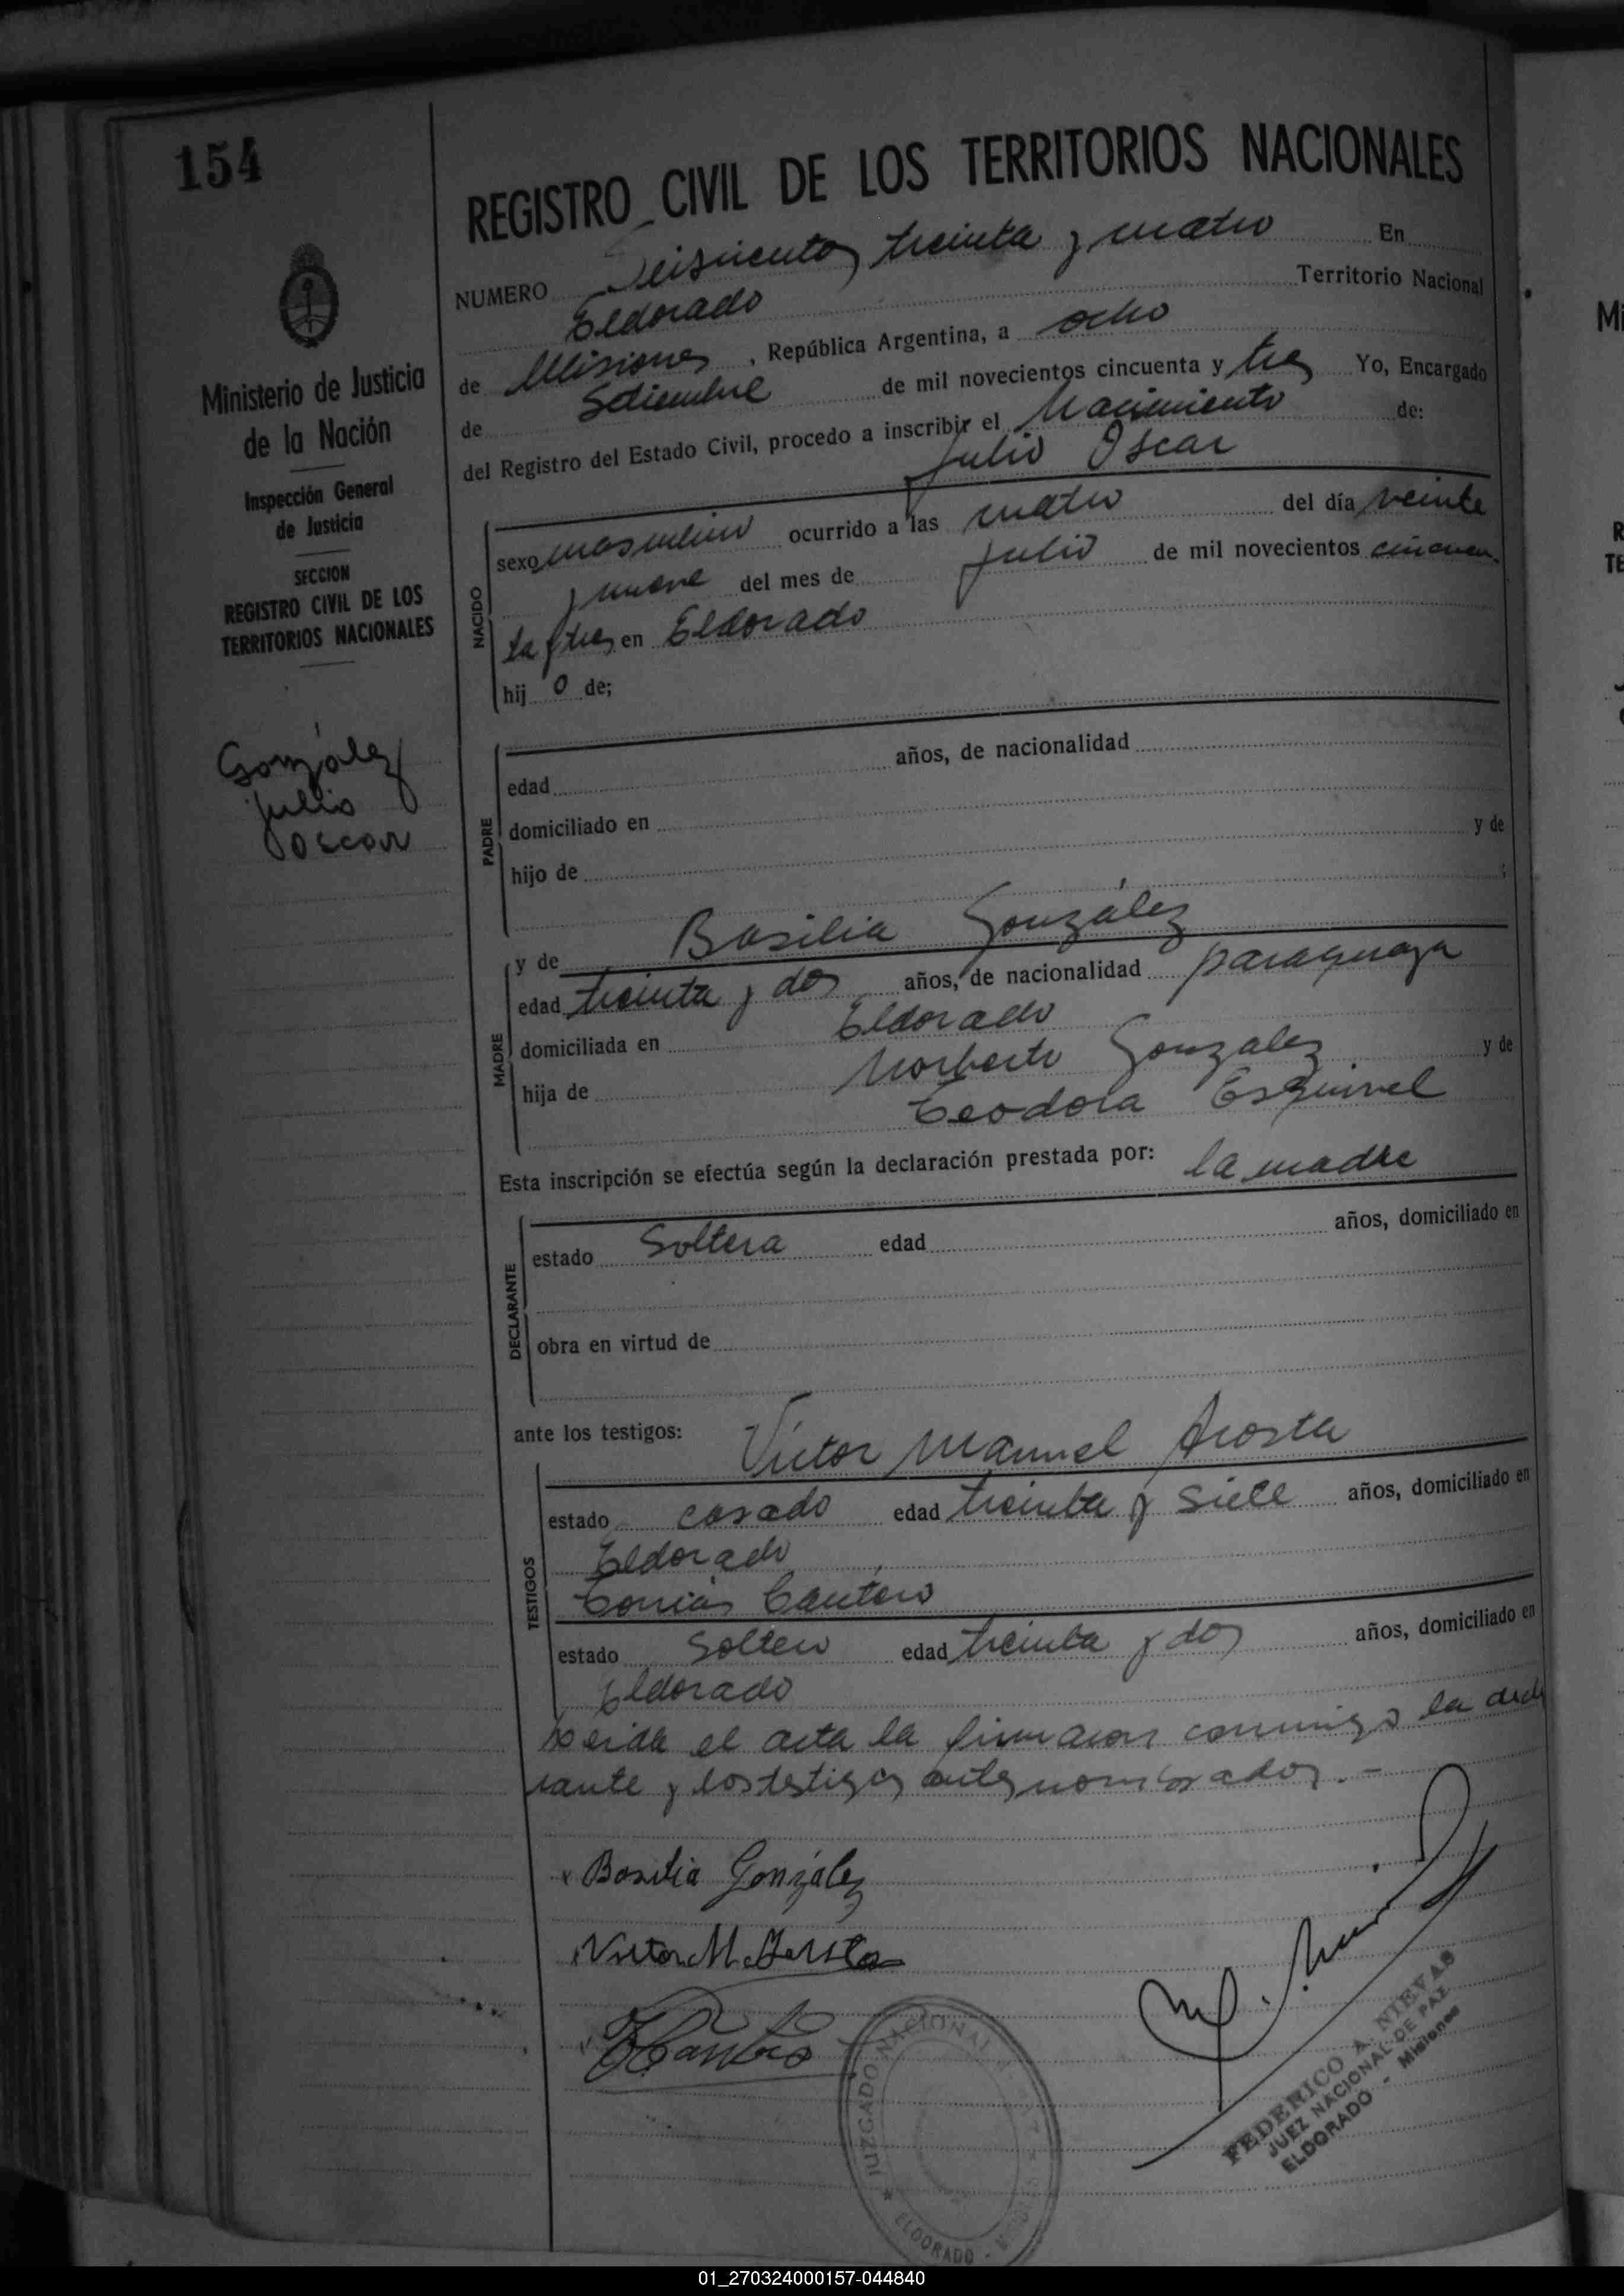 154
Ministerio de Justicia
de la Nación
Inspección General
de Justicia
SECCION
REGISTRO CIVIL DE LOS
TERRITORIOS NACIONALES
González
Julio
Oscar
REGISTRO CIVIL DE LOS TERRITORIOS NACIONALES
NUMERO Seiscientos treinta y cuatro En
Eldorado Territorio Nacional
de Misiones, República Argentina, a ocho
de Setiembre de mil novecientos cincuenta y tres Yo, Encargado
del Registro del Estado Civil, procedo a inscribir el Nacimiento de:
Julio Oscar
NACIDO
sexo masculino ocurrido a las cuatro del día veinte
y nueve del mes de julio de mil novecientos cincuen
ta y tres en Eldorado
hij o de;
PADRE
edad años, de nacionalidad
domiciliado en
hijo de y de
;
MADRE
y de Basilia González
edad treinta y dos años, de nacionalidad paraguaya
domiciliada en Eldorado
hija de Norberto Gonzalez y de
Teodora Esquivel
Esta inscripción se efectúa según la declaración prestada por: la madre
DECLARANTE
estado Soltera edad años, domiciliado en
obra en virtud de
ante los testigos: Víctor Manuel Acosta
TESTIGOS
estado casado edad treinta y siete años, domiciliado en
Eldorado
Cantero
estado Soltero edad treinta y dos años, domiciliado en
Eldorado
Leida el acta la firmaron conmigo la decla
rante y los testigos antes nombrados.-
x Basilia González
Victor M. Acosta
JUZGADO NACIONAL
ELDORADO -
FEDERICO A. NIEVAS
JUEZ NACIONAL DE PAZ
ELDORADO - Misiones
01_270324000157-044840